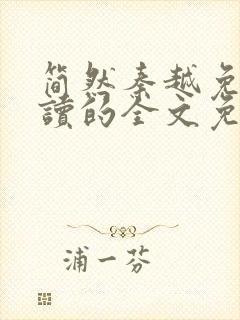 简然秦越免
读的全文免
浦一芬